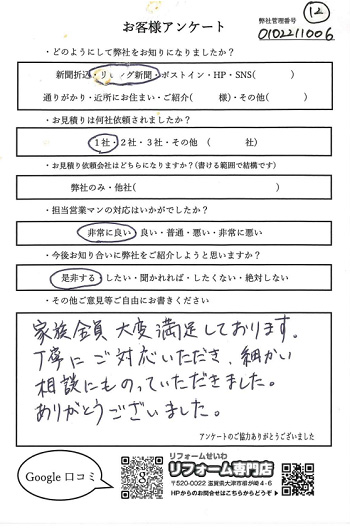 お客様アンケート
弊社管理番号
12
0102211006
・どのようにして弊社をお知りになりましたか？
新聞折込・リビング新聞・ポストイン・HP・SNS(　　　)
通りがかり・近所にお住まい・ご紹介(　　様)・その他(　　　)
・お見積りは何社依頼されましたか？
1社・2社・3社・その他　(　　　社)
・お見積り依頼会社はどちらになりますか？(書ける範囲で結構です)
弊社のみ・他社(　　　)
・担当営業マンの対応はいかがでしたか？
非常に良い・良い・普通・悪い・非常に悪い
・今後お知り合いに弊社をご紹介しようと思いますか？
是非する・したい・聞かれれば・したくない・絶対しない
・その他ご意見等ご自由にお書きください
家族全員 大変満足しております。
丁寧にご対応いただき、細かい
相談にものっていただきました。
ありがとうございました。
アンケートのご協力ありがとうございました
Google 口コミ
g
リフォームせいわ
リフォーム専門店
〒520-0022 滋賀県大津市柳が崎4-6
HPからのお問合せはこちらからどうぞ